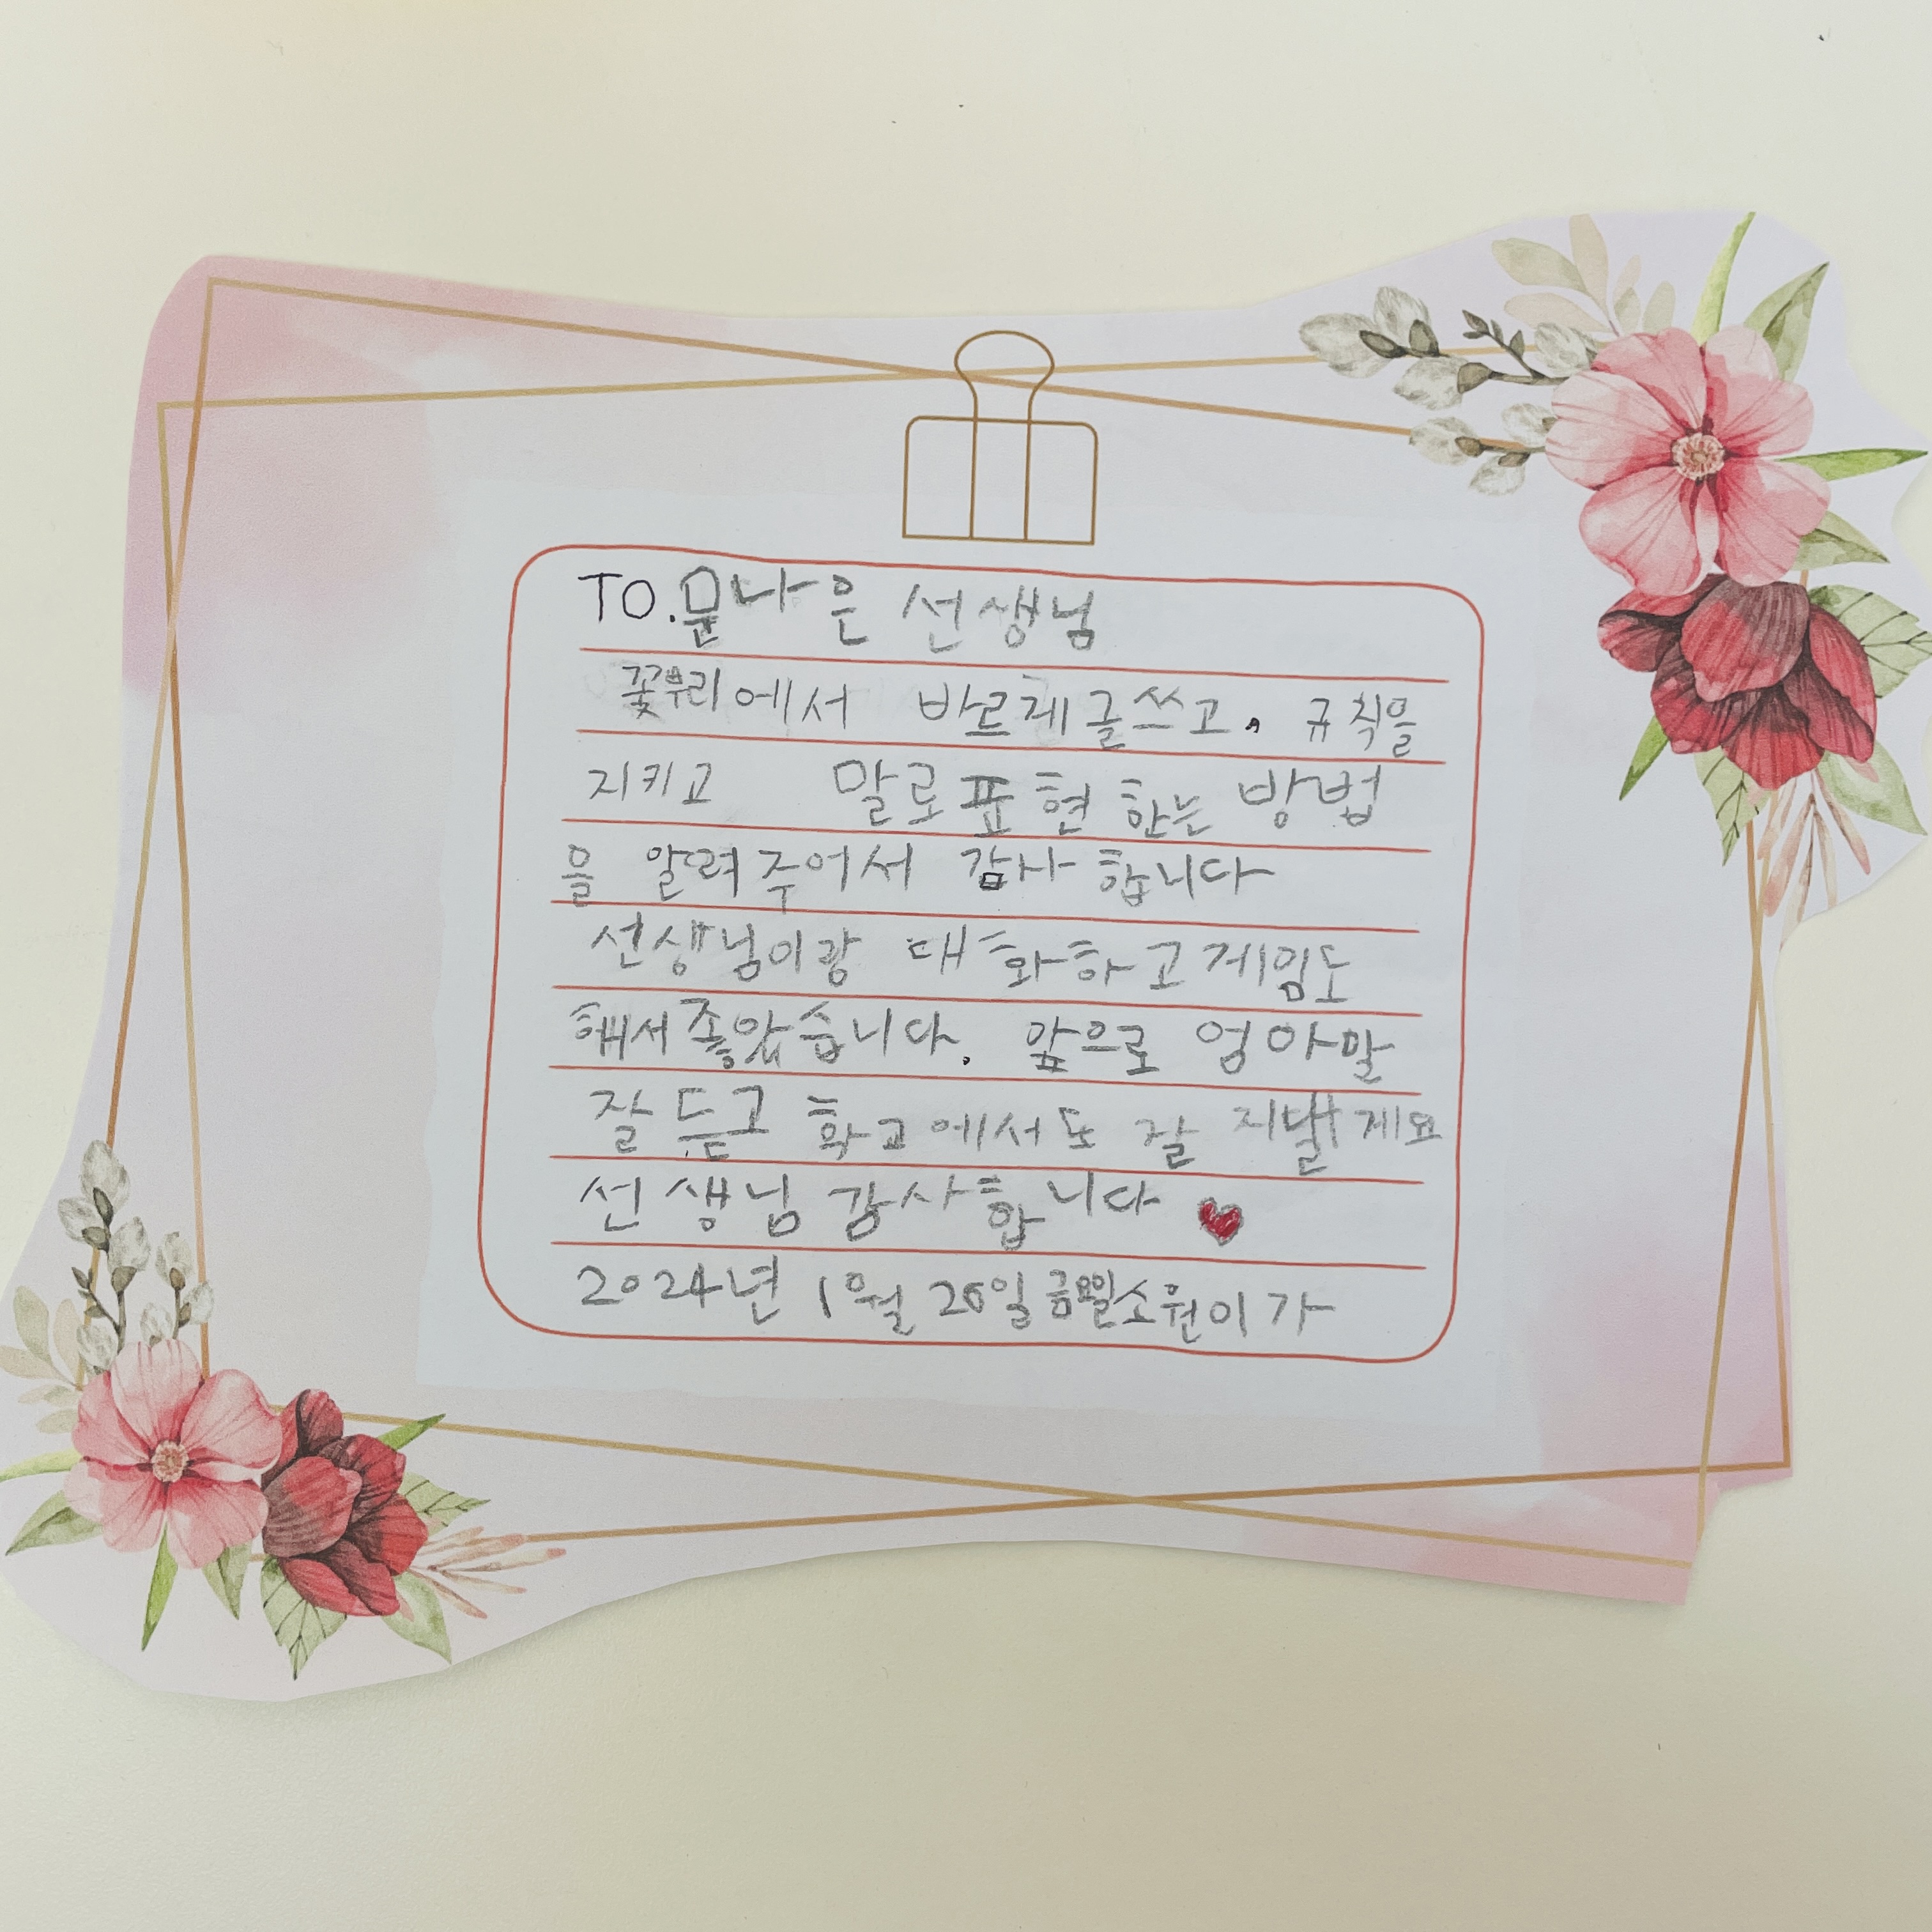 TO.문나은 선생님
꽃뿌리에서 바르게글쓰고, 규칙을
지키고 말로표현 하는 방법
을 알려주어서 감사 합니다
선생님이랑 대화하고게임도
해서좋았습니다. 앞으로 엄아말
잘 듣고 학교에서도 잘 지낼게요
선생님 감사합니다
2024년 1월 26일 금요일소원이가